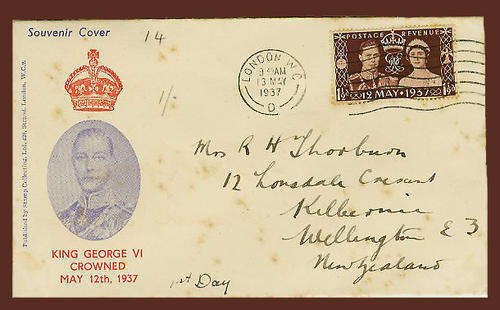 Souvenir Cover
14
1/-
Published by Stamp Collecting, Ltd. Strand, London, W.C.2.
KING GEORGE VI
CROWNED
MAY 12th, 1937
1st Day
LONDON W.C.
AM
13 MAY
1937
POSTAGE REVENUE
1½d 12 MAY · 1937 · 1½d
Mrs R H Thorburn
12 Lonsdale Cresant
Kilbernie
Wellington E 3
New Zealand